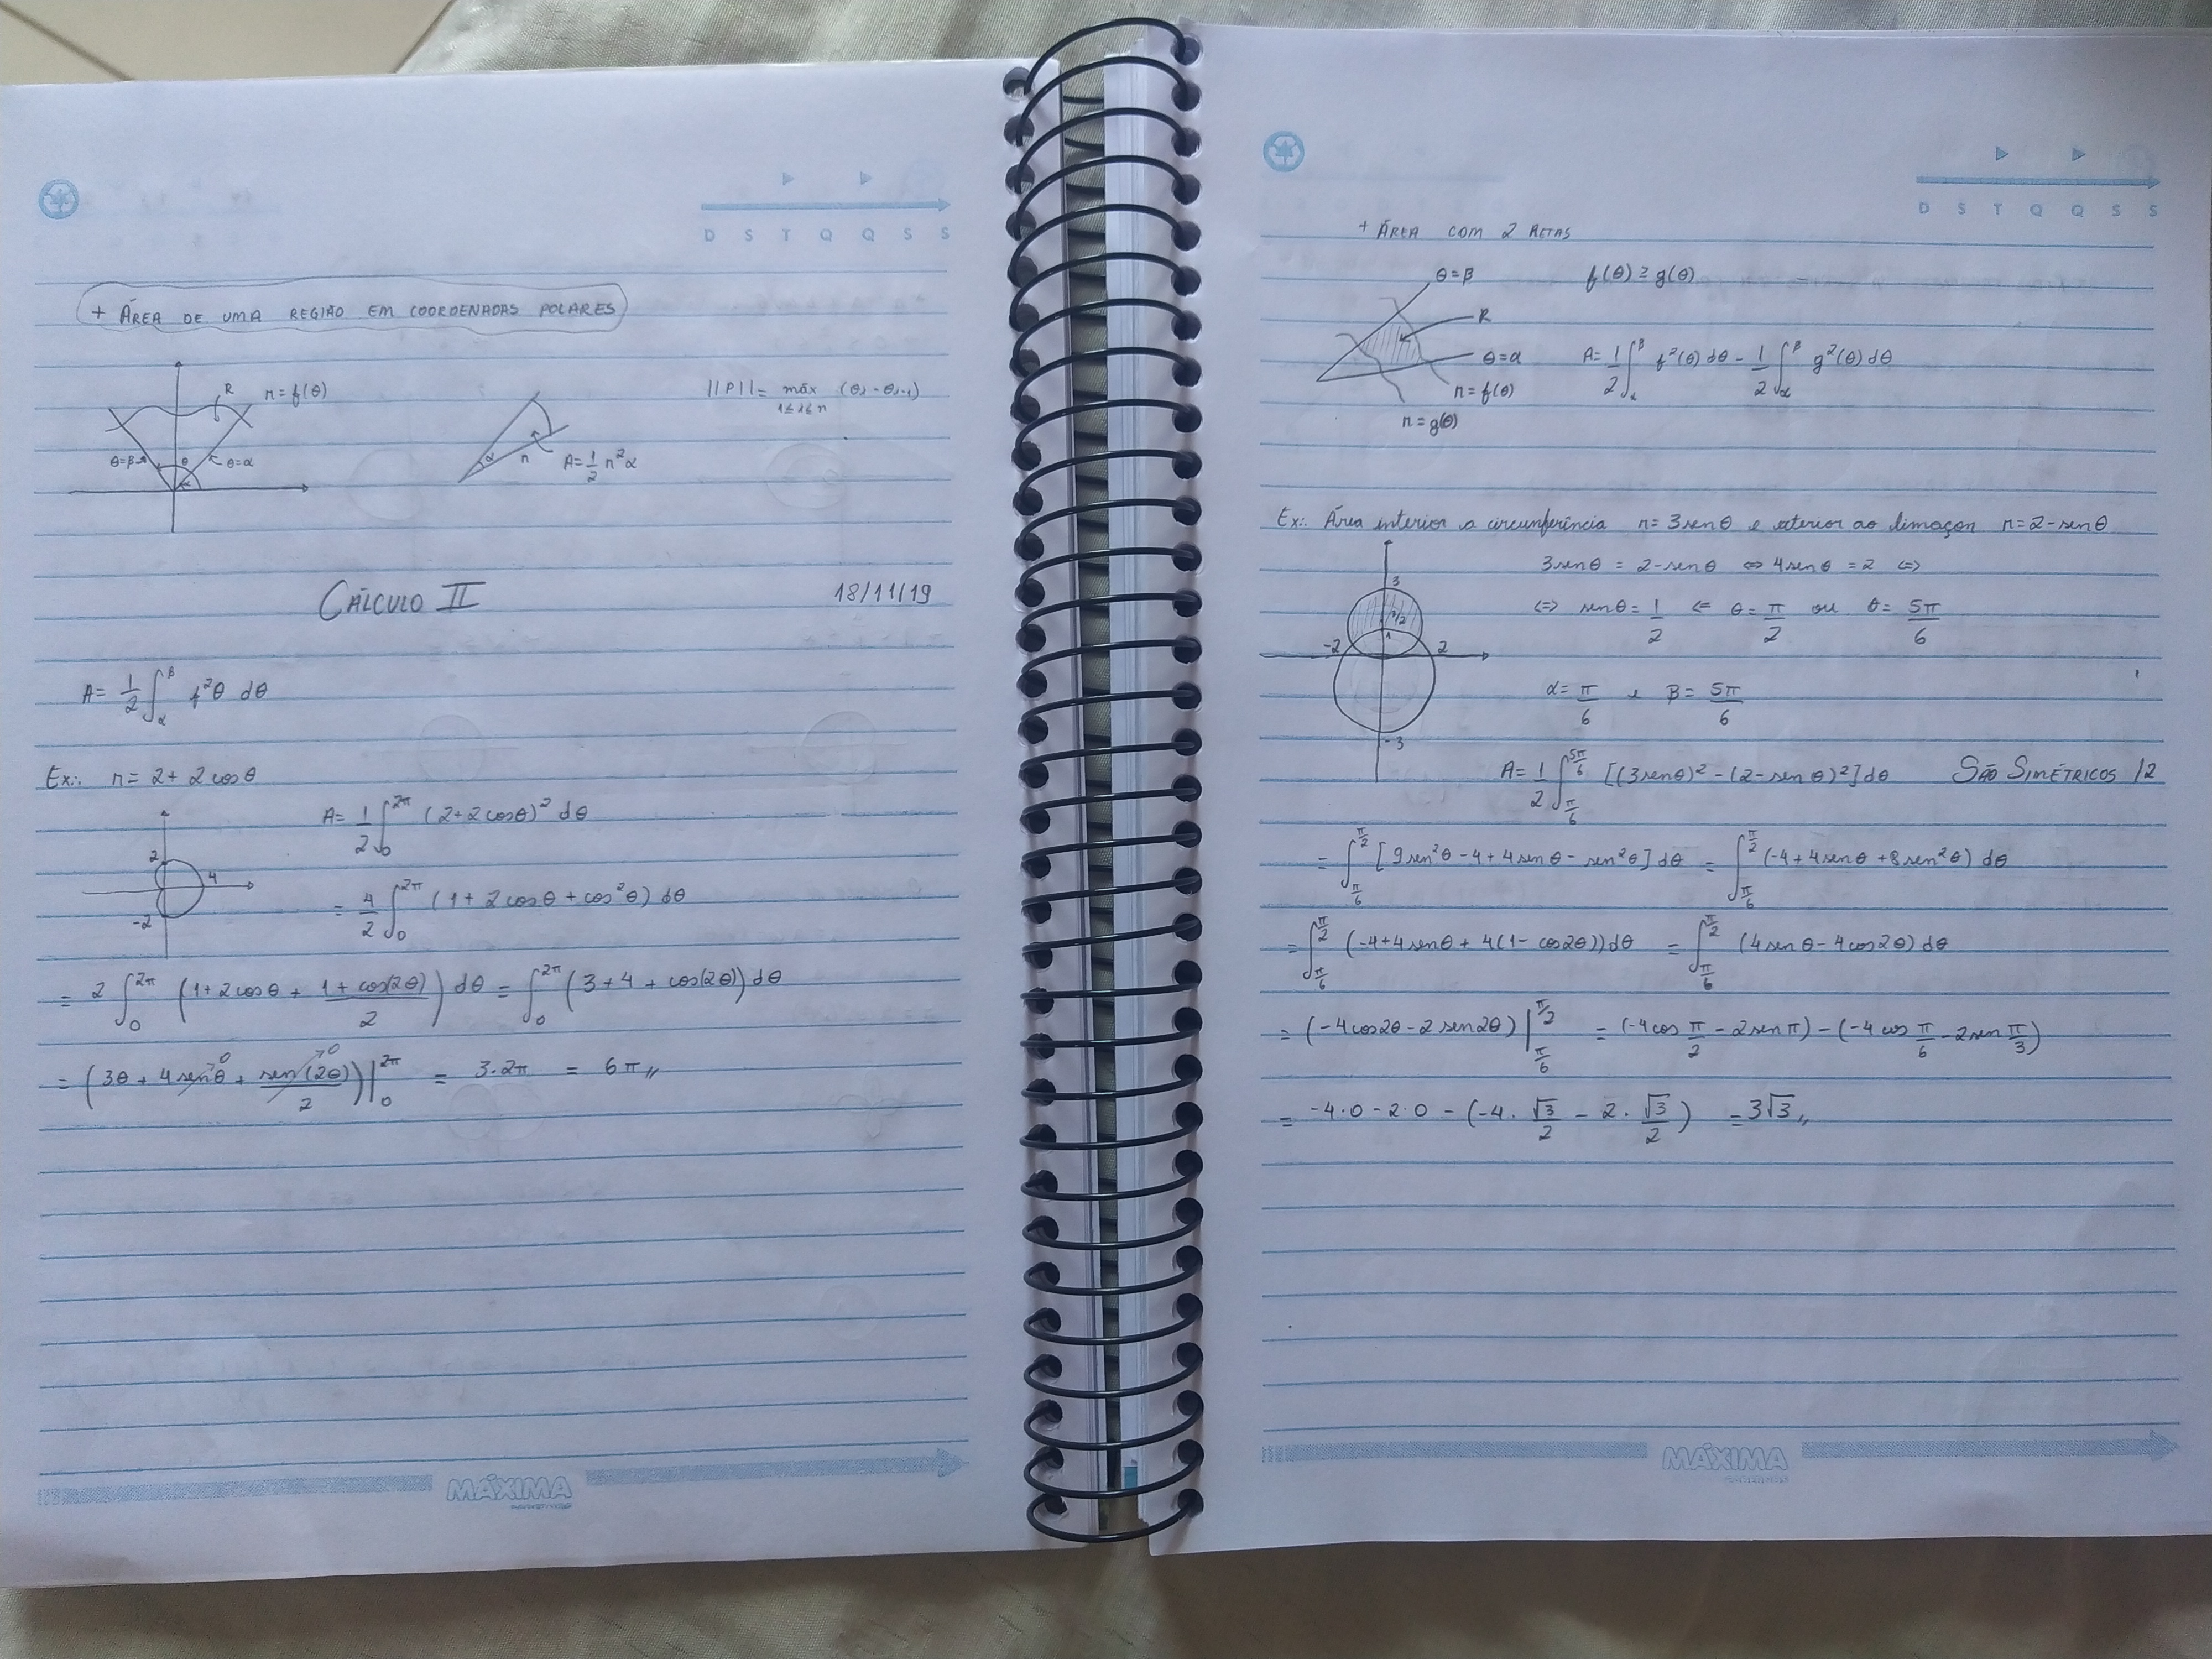 D S T Q Q S S
+ ÁREA DE UMA REGIÃO EM COORDENADAS POLARES
R r = f(θ)
θ=β
θ
θ=α
α r
A = 1/2 r²α
||P|| = máx (θi - θi-1)
1≤i≤n
CÁLCULO II 18/11/19
A = 1/2 ∫_α^β f²θ dθ
Ex.: r = 2 + 2cosθ
A = 1/2 ∫_0^2π (2+2cosθ)² dθ
2 4 -2
= 4/2 ∫_0^2π (1 + 2cosθ + cos²θ) dθ
= 2 ∫_0^2π (1 + 2cosθ + (1 + cos(2θ))/2) dθ = ∫_0^2π (3 + 4 + cos(2θ)) dθ
= (3θ + 4senθ→0 + sen(2θ)/2→0)|_0^2π = 3·2π = 6π,,
MÁXIMA
D S T Q Q S S
+ ÁREA COM 2 RETAS
θ=β f(θ) ≥ g(θ)
R
θ=α A = 1/2 ∫_α^β f²(θ) dθ - 1/2 ∫_α^β g²(θ) dθ
r = f(θ)
r = g(θ)
Ex.: Área interior a circunferência r = 3senθ e exterior ao limaçon r = 2 - senθ
3senθ = 2 - senθ ⇔ 4senθ = 2 ⇔
3 3/2 1 -2 2 -3
⇔ senθ = 1/2 ⇐ θ = π/2 ou θ = 5π/6
α = π/6 e β = 5π/6
A = 1/2 ∫_π/6^5π/6 [(3senθ)² - (2 - senθ)²] dθ SÃO SIMÉTRICOS /2
= ∫_π/6^π/2 [9sen²θ - 4 + 4senθ - sen²θ] dθ = ∫_π/6^π/2 (-4 + 4senθ + 8sen²θ) dθ
= ∫_π/6^π/2 (-4 + 4senθ + 4(1 - cos2θ)) dθ = ∫_π/6^π/2 (4senθ - 4cos2θ) dθ
= (-4cos2θ - 2sen2θ)|_π/6^π/2 = (-4cos π/2 - 2senπ) - (-4cos π/6 - 2sen π/3)
= -4·0 - 2·0 - (-4·√3/2 - 2·√3/2) = 3√3,,
MÁXIMA